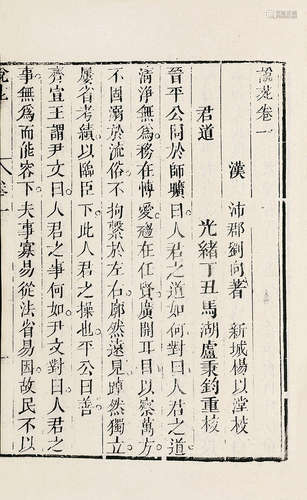 說苑卷一
漢 沛郡劉向著 新城楊以瑩校
君道 光緒丁丑馬湖盧秉鈞重校
晉平公問於師曠曰人君之道如何對曰人君之道
淸淨無爲務在博愛趨在任賢廣開耳目以察萬方
不固溺於流俗不拘繫於左右廓然遠見踔然獨立
屢省考績以臨臣下此人君之操也平公曰善
齊宣王謂尹文曰人君之事何如尹文對曰人君之
事無爲而能容下夫事寡易從法省易因故民不以
說苑 卷一 一